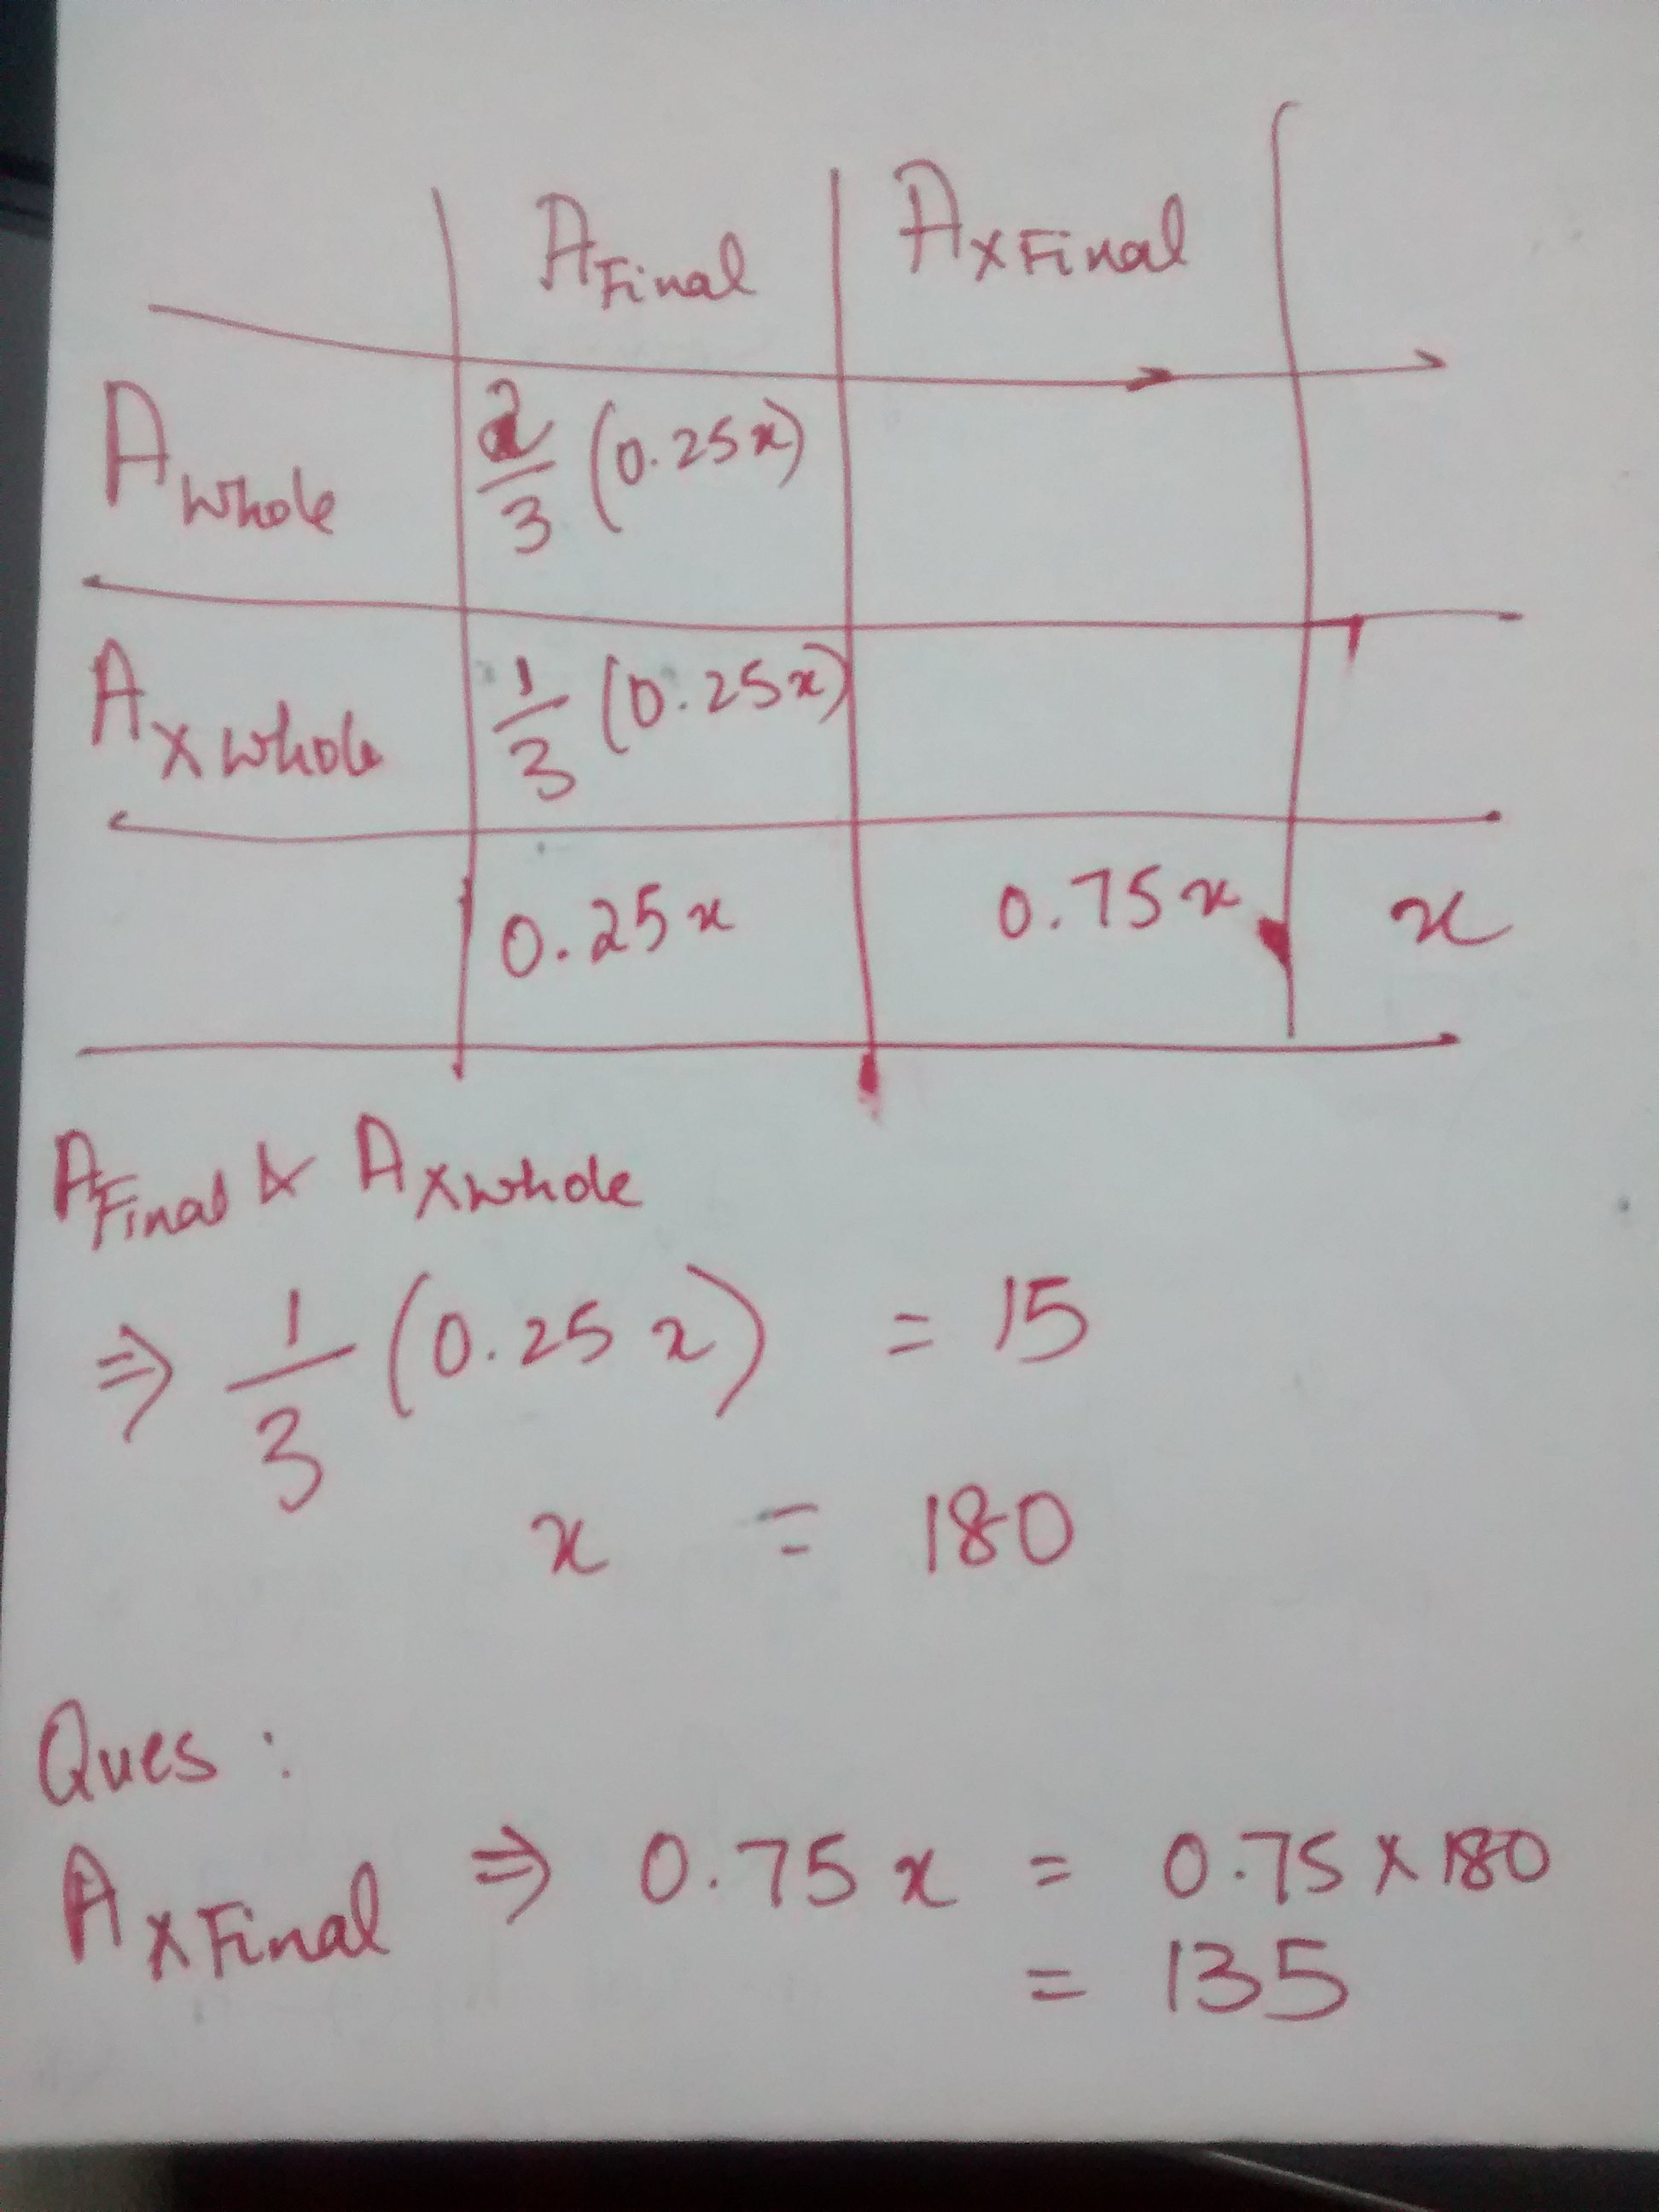 A Final A X Final
A Whole 2/3 (0.25x)
A X Whole 1/3 (0.25x)
0.25x 0.75x x
A Final & A X Whole
⇒ 1/3 (0.25x) = 15
x = 180
Ques :
A X Final ⇒ 0.75x = 0.75 × 180
= 135